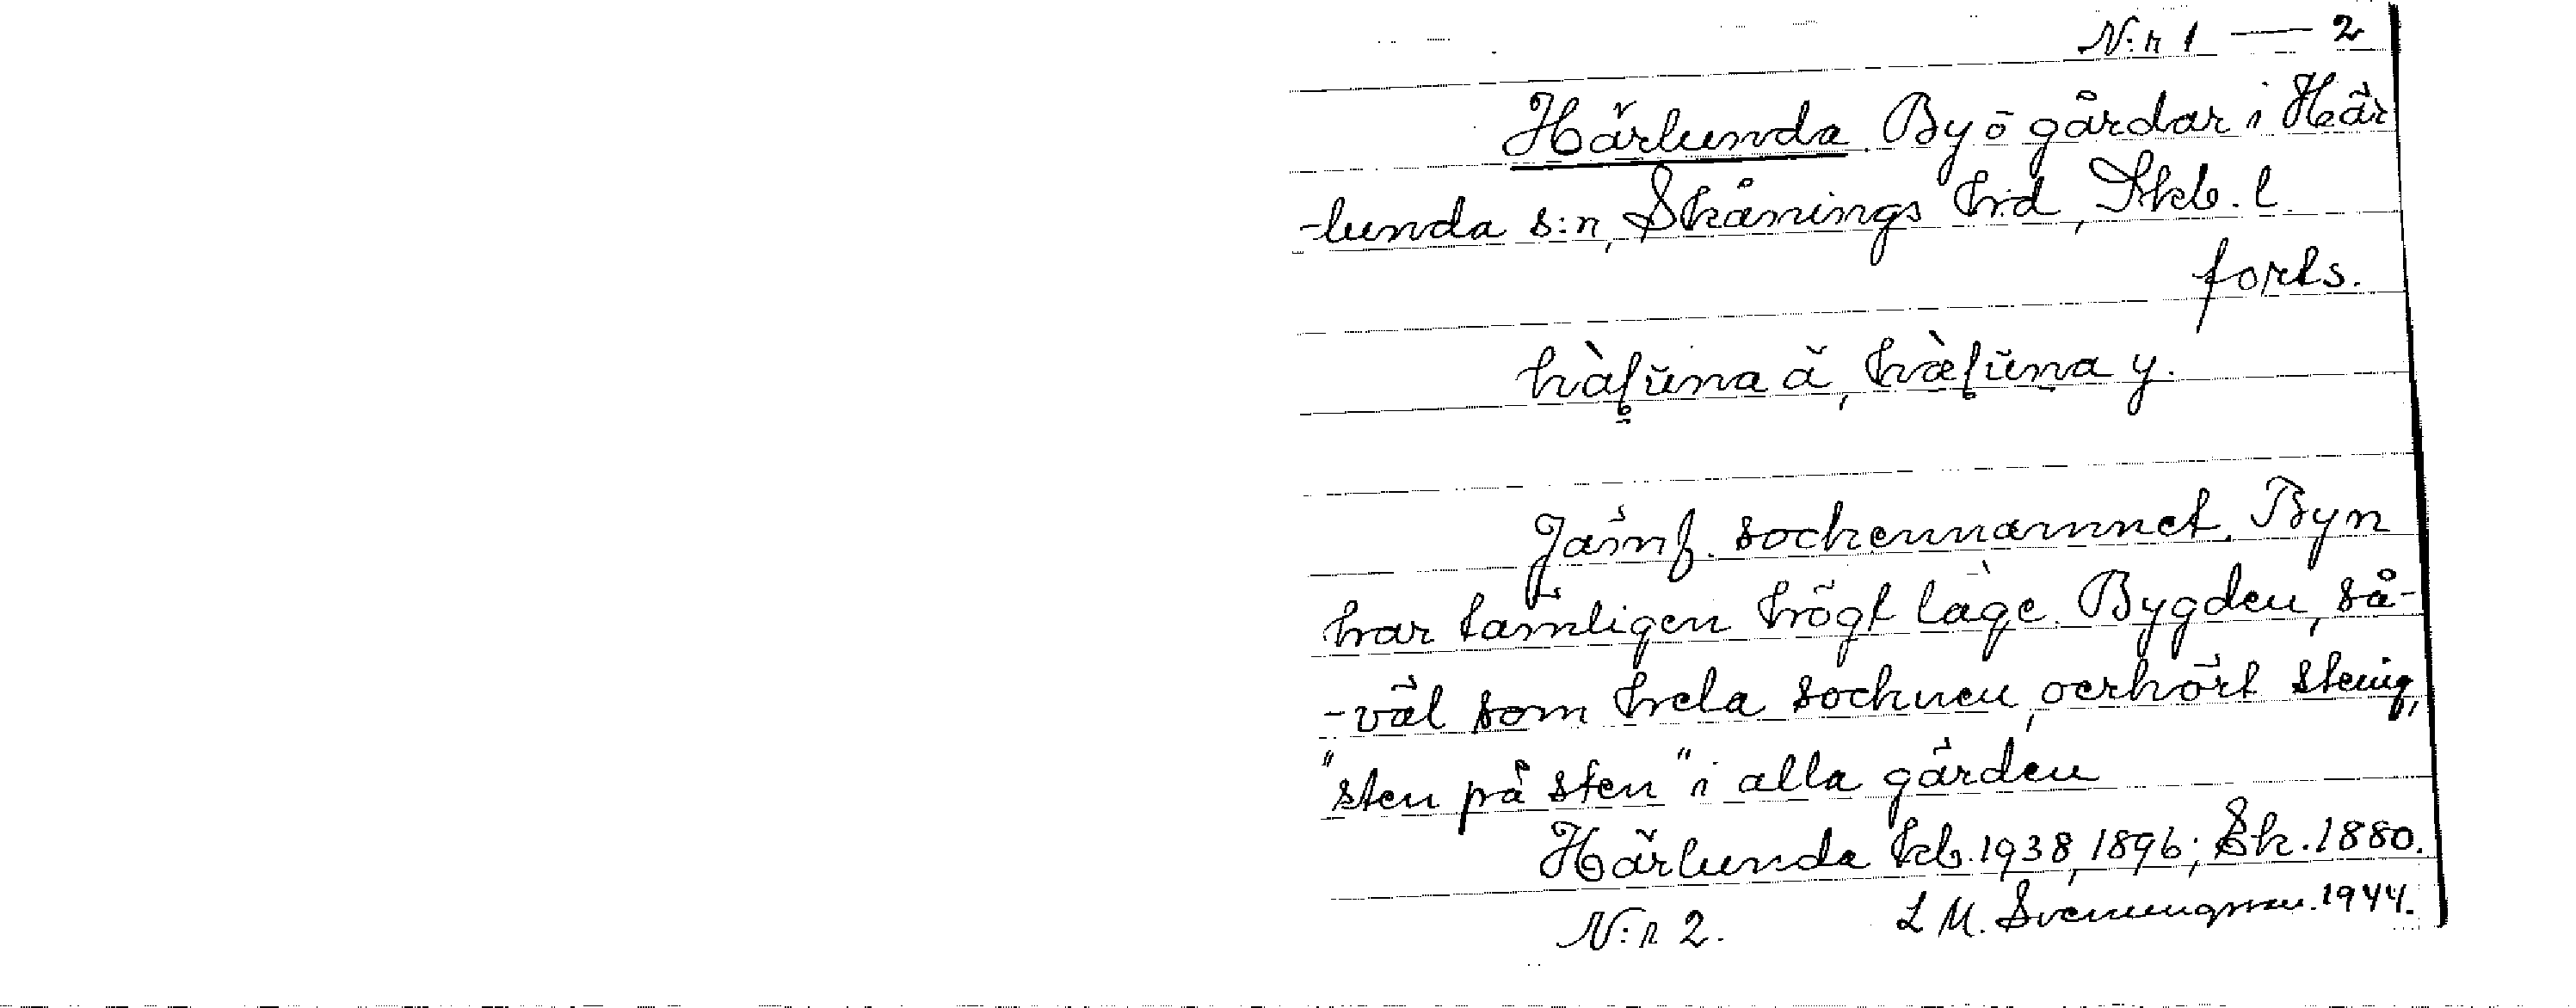 N:r 1 — 2
Härlunda. By ō gårdar i Här
-lunda s:n, Skånings hd, Skb. l.
forts.
Jämf. sockennamnet. Byn
har tämligen högt läge. Bygden, så-
-väl som hela socknen, oerhört stenig,
"sten på sten" i alla gärden
Härlunda kb. 1938, 1896; Sk. 1880.
N:r 2. L M. Svenungsson. 1944.